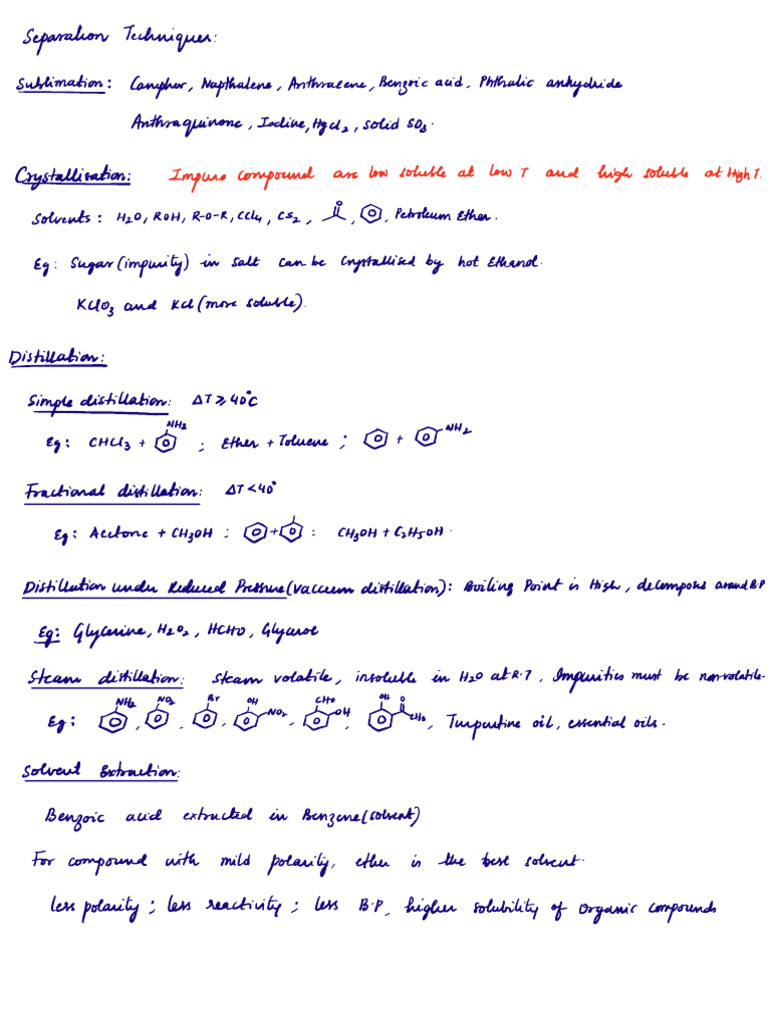 Separation Techniques:
Sublimation: Camphor, Napthalene, Anthracene, Benzoic acid, Phthalic anhydride
Anthraquinone, Iodine, HgCl2, solid SO3.
Crystallisation: Impure compound are low soluble at low T and high soluble at High T.
Solvents: H2O, ROH, R-O-R, CCl4, CS2, O, , Petroleum Ether.
Eg: Sugar (impurity) in salt can be crystallised by hot Ethanol.
KClO3 and KCl (more soluble).
Distillation:
Simple distillation: ΔT ≥ 40°C
Eg: CHCl3 + NH2 ; Ether + Toluene ; + NH2
Fractional distillation: ΔT < 40°
Eg: Acetone + CH3OH ; + : CH3OH + C2H5OH.
Distillation under Reduced Pressure (vaccum distillation): Boiling Point is High, decomposes around B.P
Eg: Glycerine, H2O2, HCHO, Glycerol
Steam distillation: Steam volatile, insoluble in H2O at R.T, Impurities must be non volatile.
Eg: NH2, NO2, Br, OH NO2, CHO OH, OH O CH3, Turpuntine oil, essential oils.
Solvent Extraction:
Benzoic acid extracted in Benzene (solvent)
For compound with mild polarity, ether is the best solvent.
less polarity; less reactivity; less B.P, higher solubility of organic compounds